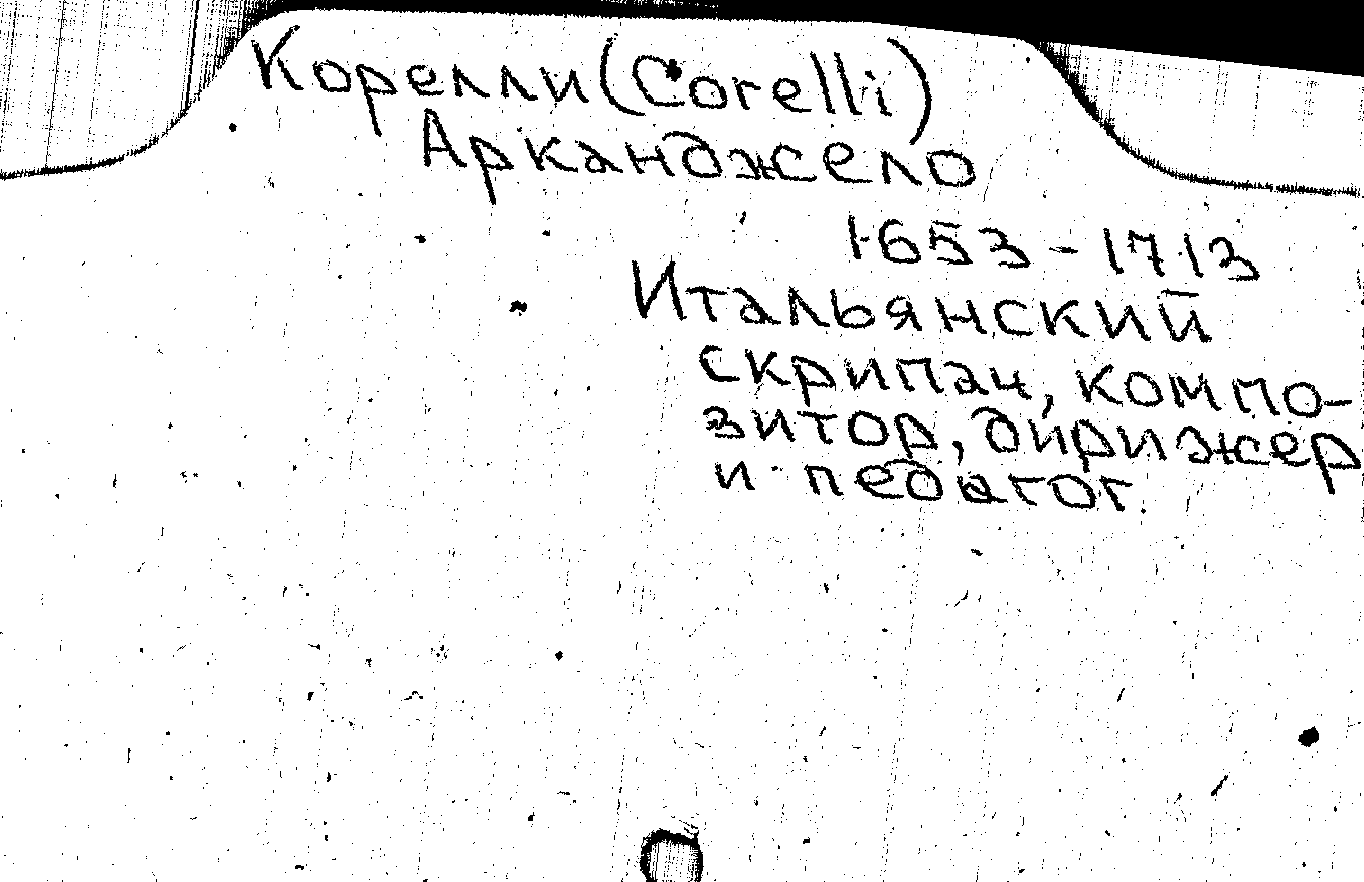 Корелли (Corelli)
Арканджело
1653-1713
Итальянский
скрипач, компо-
зитор, дирижер
и педагог.